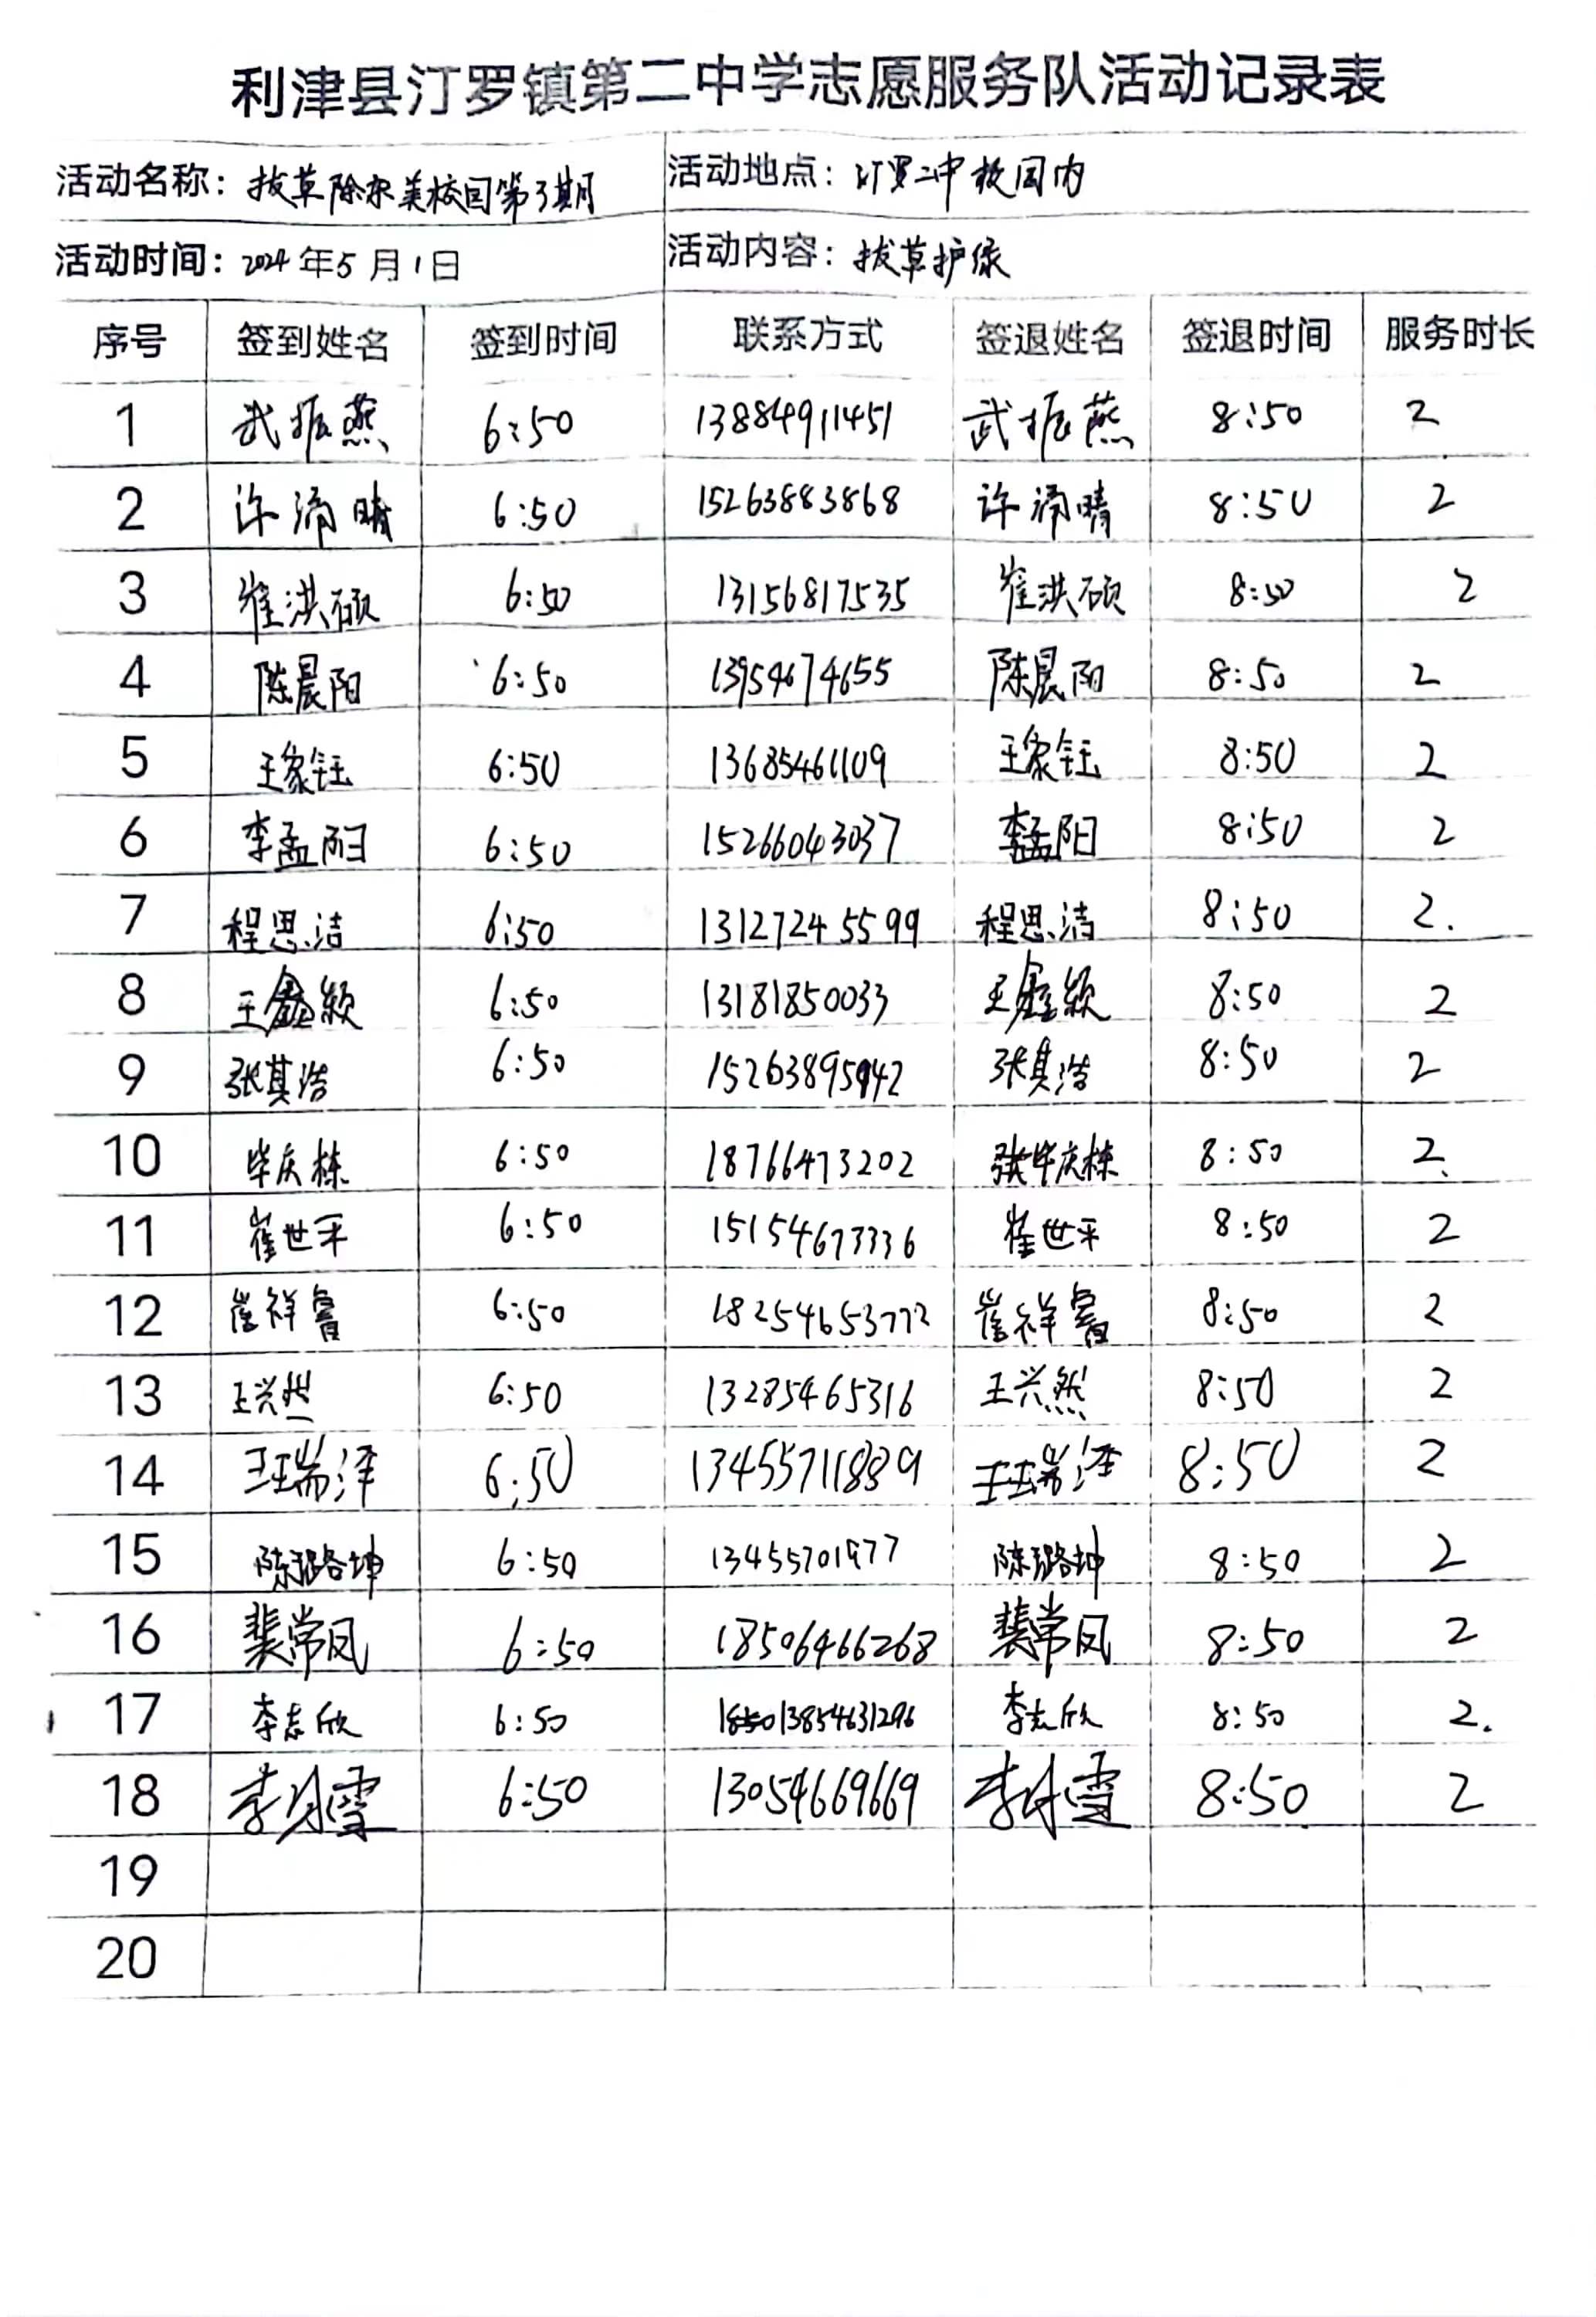 利津县汀罗镇第二中学志愿服务队活动记录表
活动名称：拔草除杂美校园第3期 活动地点：汀罗二中校园内
活动时间：2024年5月1日 活动内容：拔草护绿
序号 签到姓名 签到时间 联系方式 签退姓名 签退时间 服务时长
1 武振燕 6:50 13884911451 武振燕 8:50 2
2 许沛晴 6:50 15263883868 许沛晴 8:50 2
3 崔洪硕 6:50 13156817535 崔洪硕 8:50 2
4 陈晨阳 6:50 13954674655 陈晨阳 8:50 2
5 王家钰 6:50 13685461109 王家钰 8:50 2
6 李孟阳 6:50 15266043037 李孟阳 8:50 2
7 程思洁 6:50 13127245599 程思洁 8:50 2.
8 王鑫颖 6:50 13181850033 王鑫颖 8:50 2
9 张其浩 6:50 15263895942 张其浩 8:50 2
10 毕庆栋 6:50 18766473202 毕庆栋 8:50 2.
11 崔世平 6:50 15154673336 崔世平 8:50 2
12 崔祥睿 6:50 18254653772 崔祥睿 8:50 2
13 王兴然 6:50 13285465316 王兴然 8:50 2
14 王瑞泽 6:50 13455711889 王瑞泽 8:50 2
15 陈璐坤 6:50 13455701977 陈璐坤 8:50 2
16 裴常凤 6:50 18506466268 裴常凤 8:50 2
17 李志欣 6:50 13854631296 李志欣 8:50 2.
18 李 雪 6:50 13054669669 李 雪 8:50 2
19
20